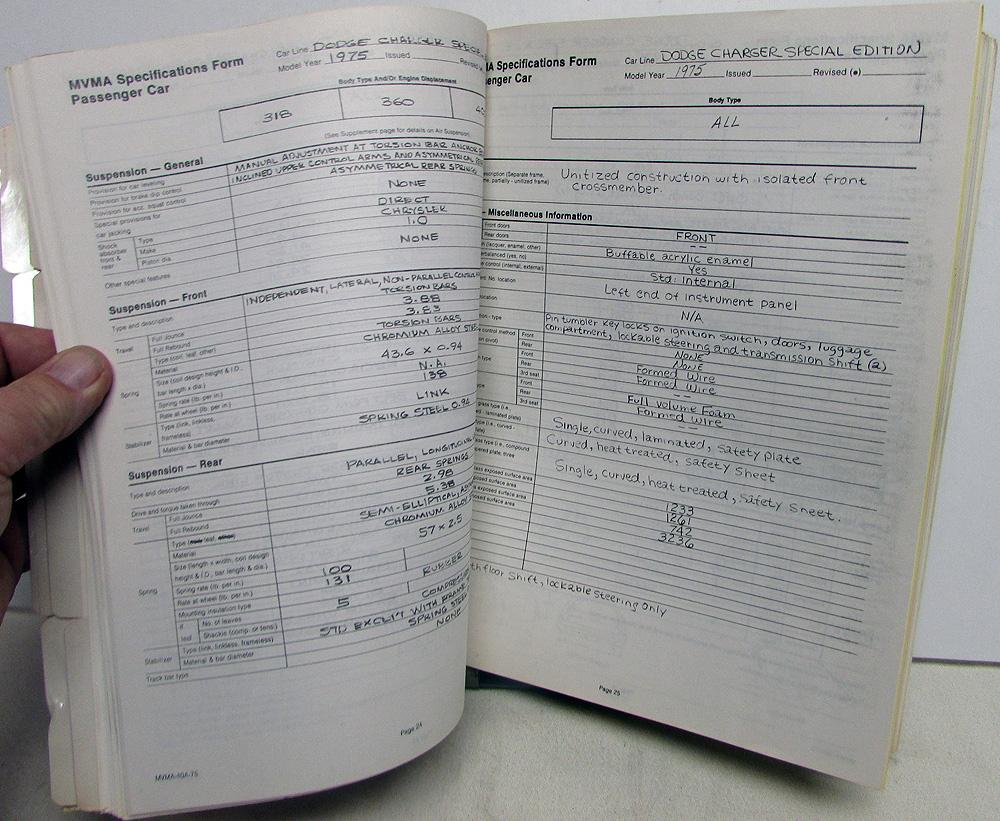 MVMA Specifications Form
Passenger Car
Car Line DODGE CHARGER SPECI
Model Year 1975 Issued Revised
Body Type And/Or Engine Displacement
318 360 40
(See Supplement page for details on Air Suspension)
Suspension — General
Provision for car leveling MANUAL ADJUSTMENT AT TORSION BAR ANCHOR
Provision for brake dip control INCLINED UPPER CONTROL ARMS AND ASYMMETRICAL
Provision for acc. squat control ASYMMETRICAL REAR SPRINGS
Special provisions for
car jacking NONE
Shock absorber front & rear
Type DIRECT
Make CHRYSLER
Piston dia. 1.0
Other special features NONE
Suspension — Front
Type and description INDEPENDENT, LATERAL, NON-PARALLEL CONTROL
TORSION BARS
Travel
Full Jounce 3.88
Full Rebound 3.83
Spring
Type (coil, leaf, other) TORSION BARS
Material CHROMIUM ALLOY STE
Size (coil design height & I.D.,
bar length x dia.) 43.6 x 0.94
Spring rate (lb. per in.) N.A.
Rate at wheel (lb. per in.) 138
Stabilizer
Type (link, linkless,
frameless) LINK
Material & bar diameter SPRING STEEL 0.94
Suspension — Rear
Type and description PARALLEL, LONGITUDINAL
Drive and torque taken through REAR SPRINGS
Travel
Full Jounce 2.98
Full Rebound 5.38
Spring
Type (coil, leaf, other) SEMI-ELLIPTICAL, AS
Material CHROMIUM ALLOY
Size (length x width, coil design
height & I.D., bar length & dia.) 57 x 2.5
Spring rate (lb. per in.) 100
Rate at wheel (lb. per in.) 131
Mounting insulation type RUBBER
If leaf
No. of leaves 5
Shackle (comp. or tens.) COMPRE
Stabilizer
Type (link, linkless, frameless) STD EXCEPT WITH FRAME
Material & bar diameter SPRING STEEL
Track bar type NONE
Page 24
MVMA-40A-75
A Specifications Form
enger Car
Car Line DODGE CHARGER SPECIAL EDITION
Model Year 1975 Issued Revised (●)
Body Type
ALL
escription (Separate frame,
me, partially - unitized frame)
Unitized construction with isolated front
crossmember.
– Miscellaneous Information
Front doors FRONT
Rear doors --
(lacquer, enamel, other) Buffable acrylic enamel
balanced (yes, no) Yes
control (internal, external) Std: Internal
No. location Left end of instrument panel
location N/A
- type Pin tumbler key locks on ignition switch, doors, luggage
compartment, lockable steering and transmission shift (2)
control method
pivot)
Front NONE
Rear NONE
Front Formed Wire
Rear Formed Wire
3rd seat --
Front Full Volume Foam
Rear Formed Wire
3rd seat --
glass type (i.e.,
d - laminated plate) Single, curved, laminated, safety plate
type (i.e., curved - Curved, heat treated, safety sheet
type (i.e., compound
pered plate, three Single, curved, heat treated, safety sheet.
exposed surface area 1233
posed surface area 1261
exposed surface area 742
posed surface area 3236
th floor shift, lockable steering only
Page 25